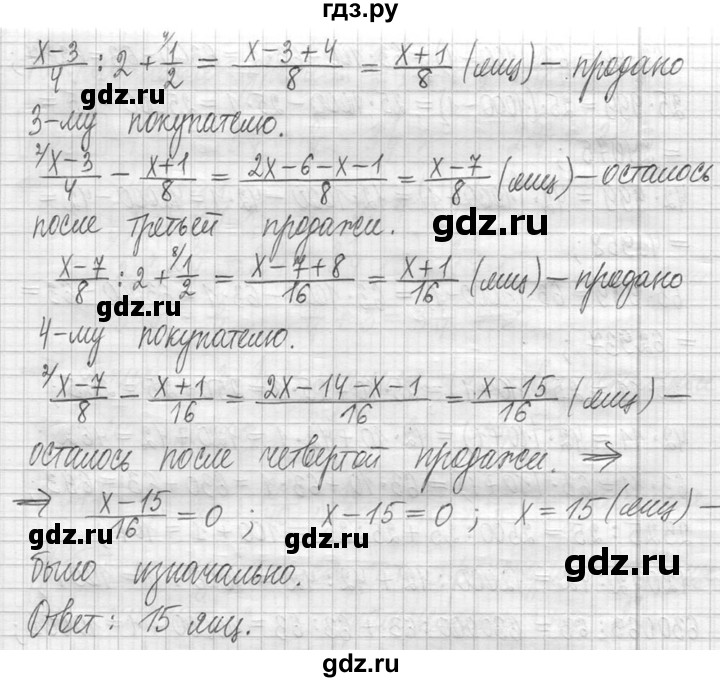 гдз.ру
(x-3)/4 : 2 + ⁴⁾1/2 = (x-3+4)/8 = (x+1)/8 (яиц) – продано
gdz.ru
gdz.ru
3-му покупателю.
²⁾(x-3)/4 - (x+1)/8 = (2x-6-x-1)/8 = (x-7)/8 (яиц) – осталось
после третьей продажи.
gdz.ru
(x-7)/8 : 2 + ⁸⁾1/2 = (x-7+8)/16 = (x+1)/16 (яиц) – продано
gdz.ru
4-му покупателю.
²⁾(x-7)/8 - (x+1)/16 = (2x-14-x-1)/16 = (x-15)/16 (яиц) –
gdz.ru
осталось после четвертой продажи. ⇒
⇒ (x-15)/16 = 0 ; x-15=0 ; x=15 (яиц) –
gdz.ru
gdz.ru
было изначально.
Ответ: 15 яиц.
gdz.ru